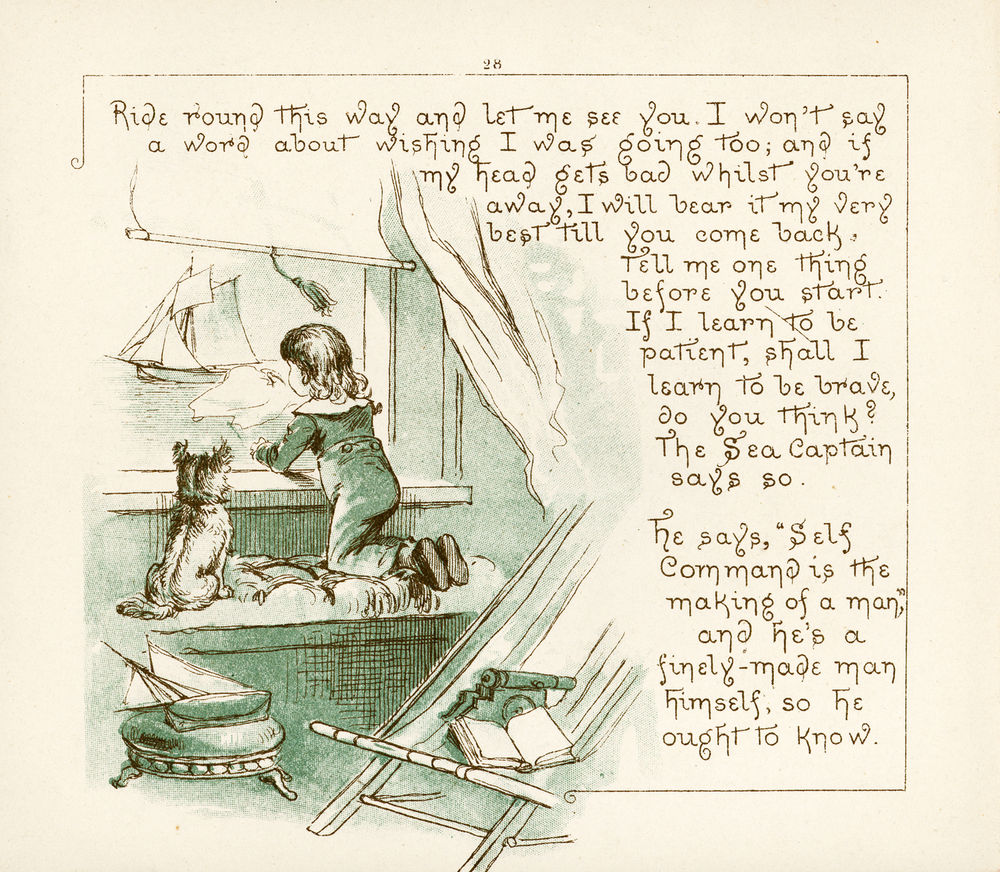 28
Ride round this way and let me see you. I won't say
a word about wishing I was going too; and if
my head gets bad whilst you're
away, I will bear it my very
best till you come back.
Tell me one thing
before you start.
If I learn to be
patient, shall I
learn to be brave,
do you think?
The Sea Captain
says so.
He says, "Self
Command is the
making of a man,"
and he's a
finely-made man
himself, so he
ought to know.